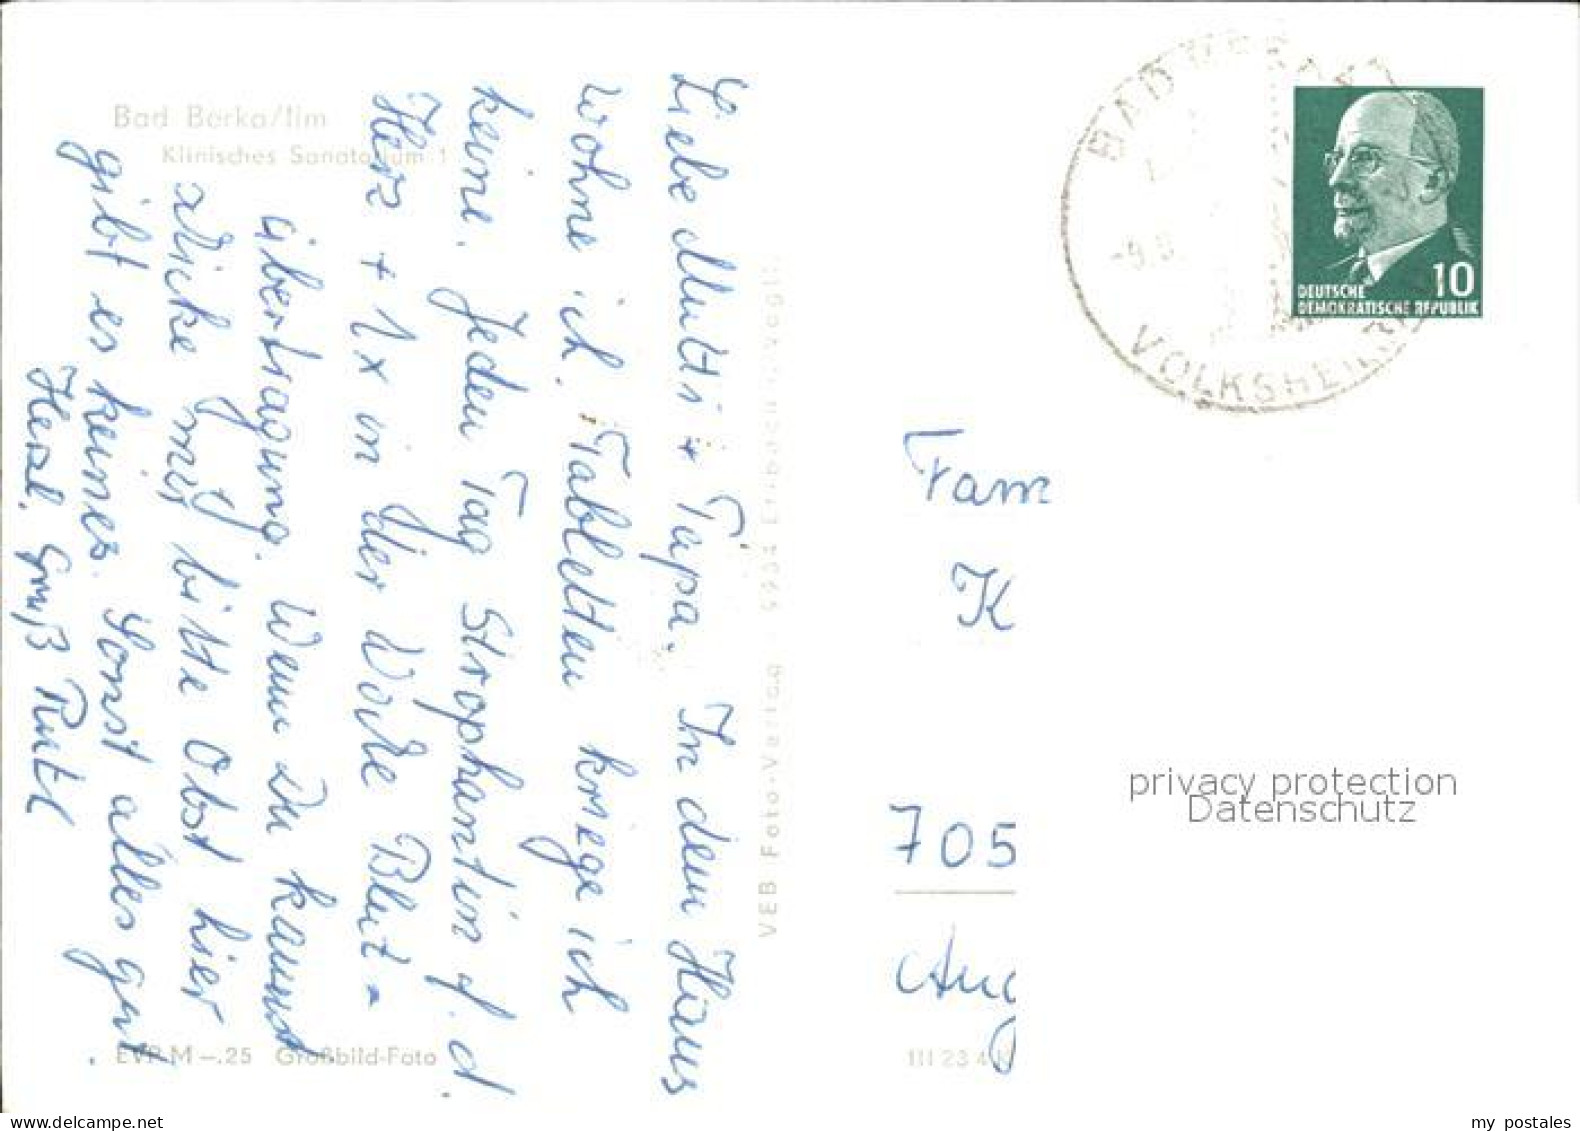 Bad Berka/Ilm
Klinisches Sanatorium 1
Liebe Mutti + Papa. In dem Haus
wohne ich. Tabletten kriege ich
keine. Jeden Tag Strophantin f. d.
Herz + 1x in der Woche Blut-
übertragung. Wenn Du kannst
schicke mir bitte Obst hier
gibt es keines. Sonst alles gut.
Herzl. Gruß Ruth
VEB Foto-Verlag 9934 Erlbach i. Vogtl.
EVP M -.25 Großbild-Foto
III 23 4
BAD BERKA
-9.
VOLKSHEI
10
DEUTSCHE
DEMOKRATISCHE REPUBLIK
Fam
K
705
Aug
privacy protection
Datenschutz
my postales